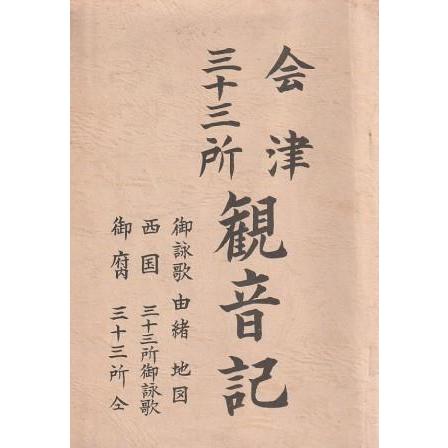 会津
三十三所
観音記
御詠歌 由緒 地図
西国 三十三所御詠歌
御府内 三十三所 仝